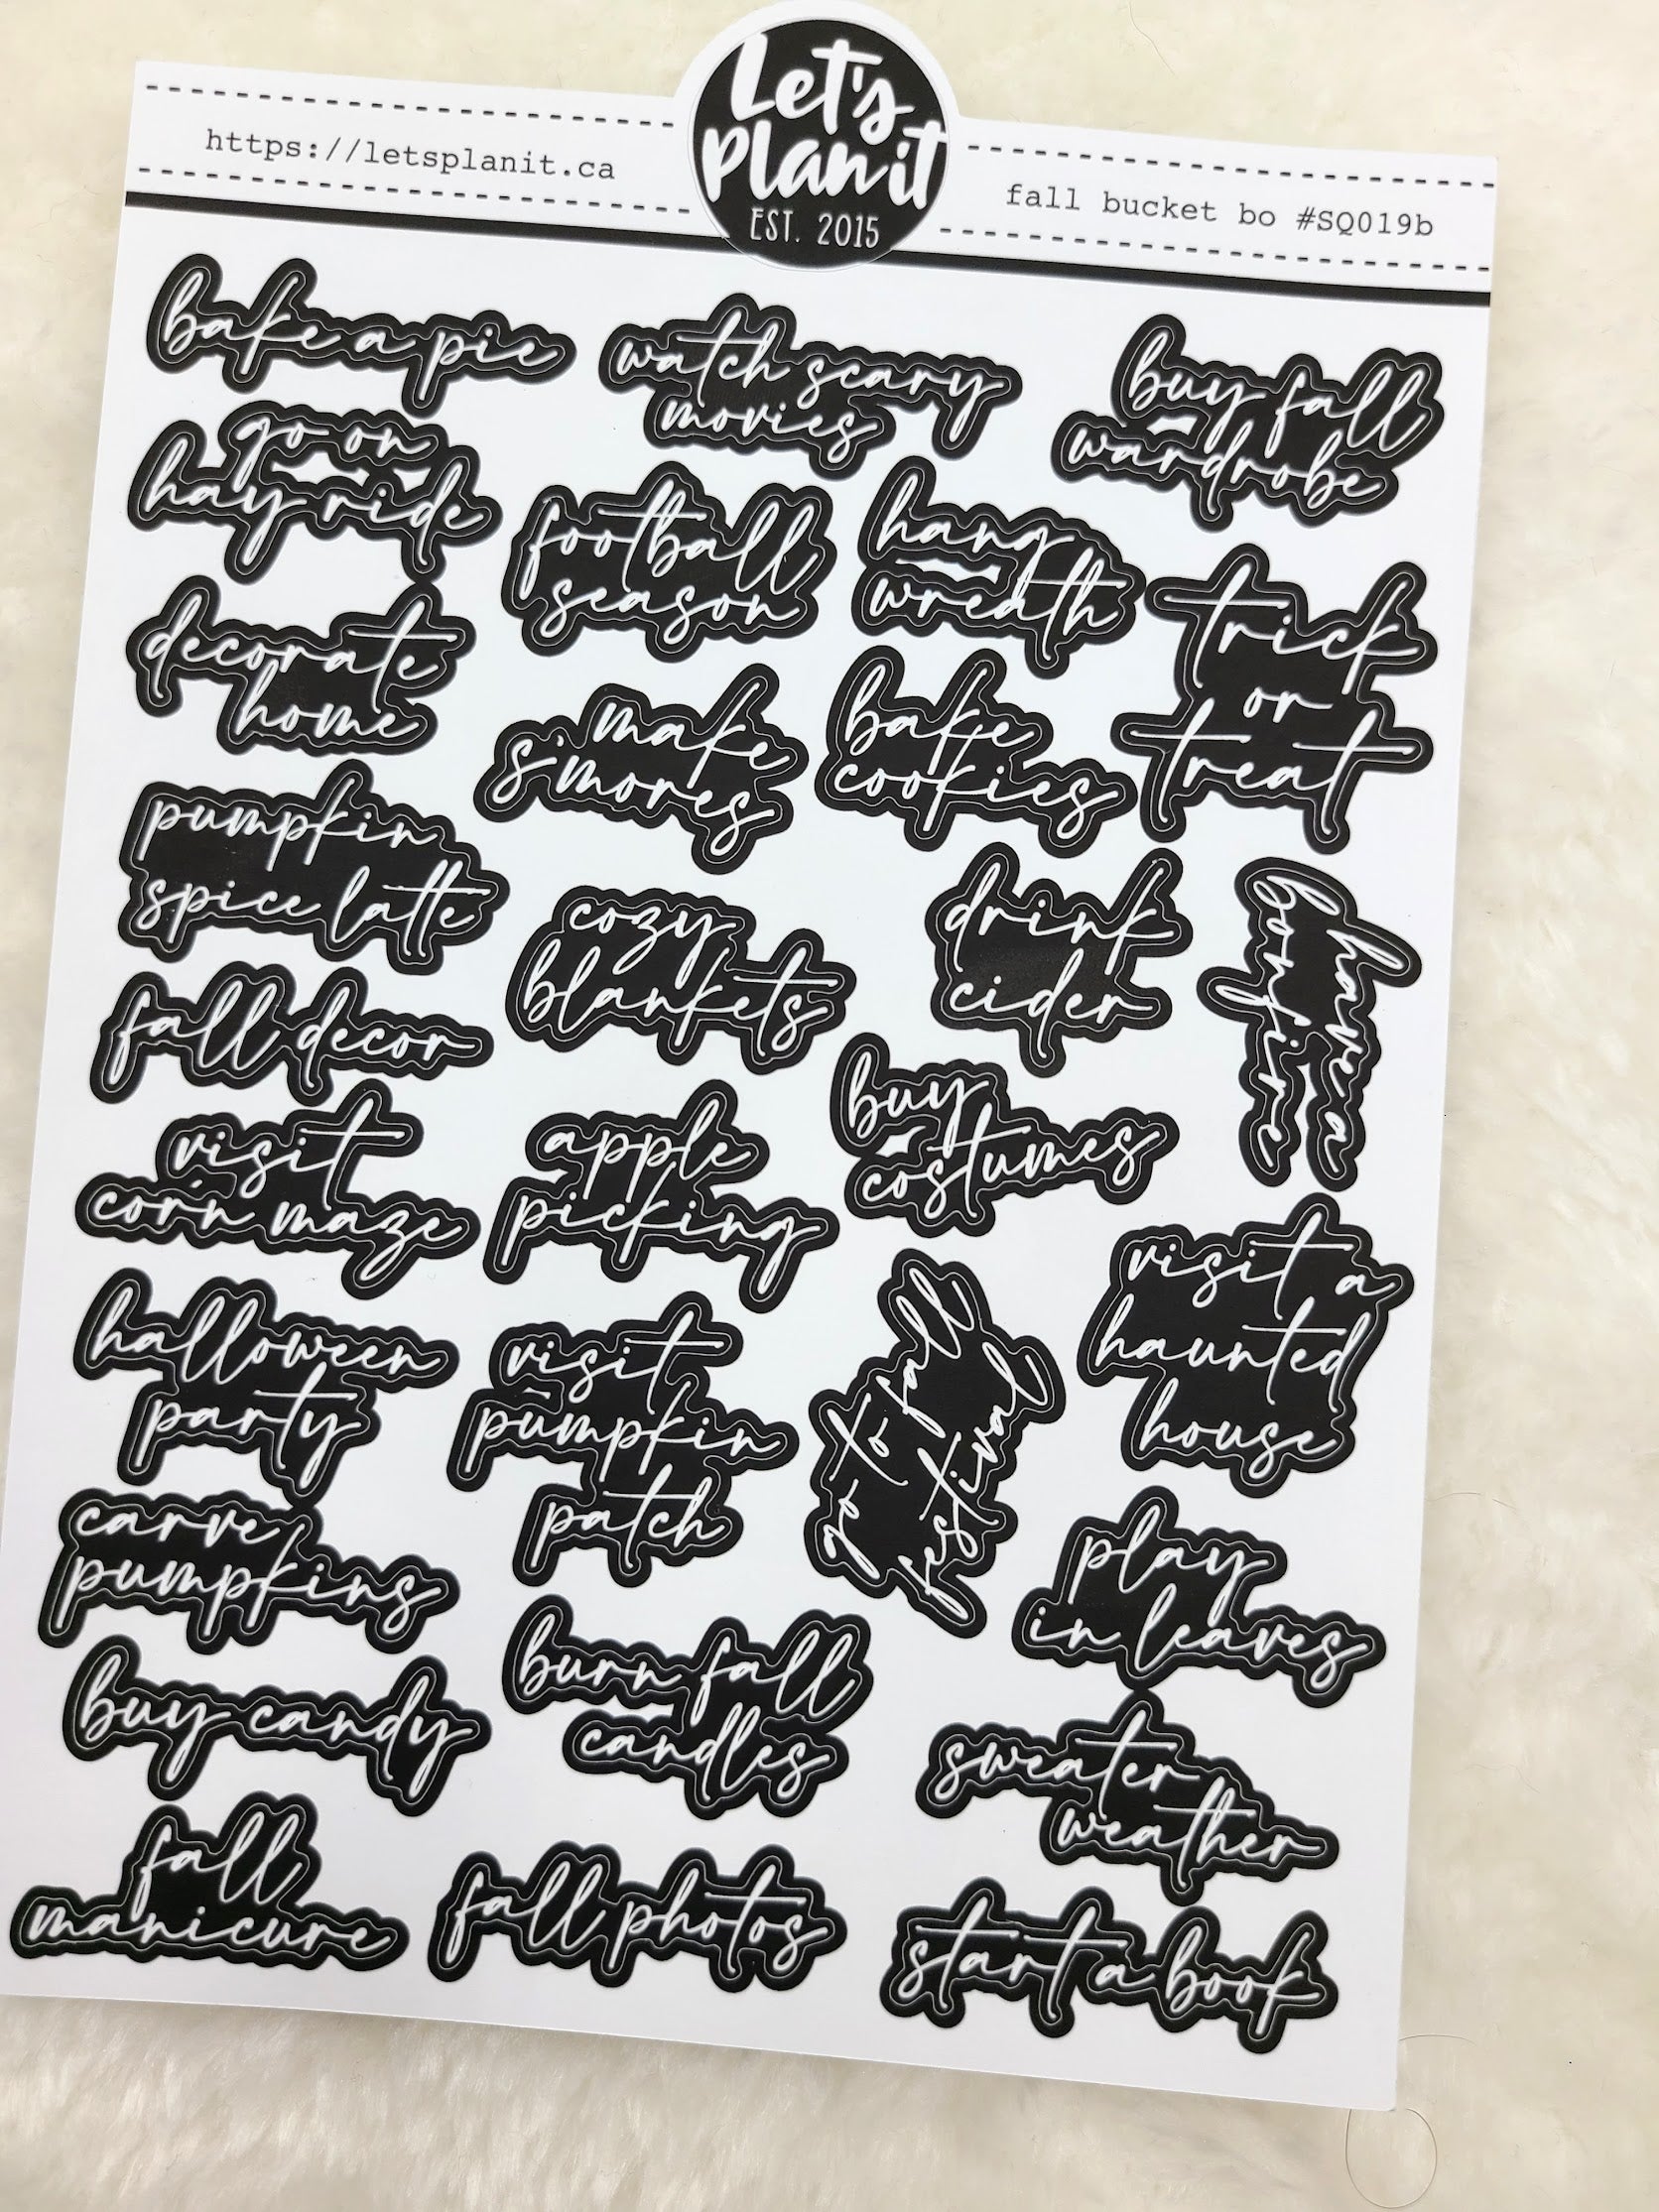 Let's
Plan it
EST. 2015
https://letsplanit.ca
fall bucket bo #SQ019b
bake a pie
watch scary
movies
buy fall
wardrobe
go on
hay ride
football
season
hang
wreath
trick
or
treat
decorate
home
make
s'mores
bake
cookies
pumpkin
spice latte
cozy
blankets
drink
cider
have a
bonfire
fall decor
buy
costumes
visit
corn maze
apple
picking
visit a
haunted
house
halloween
party
visit
pumpkin
patch
go to fall
festival
carve
pumpkins
play
in leaves
buy candy
burn fall
candles
sweater
weather
fall
manicure
fall photos
start a book